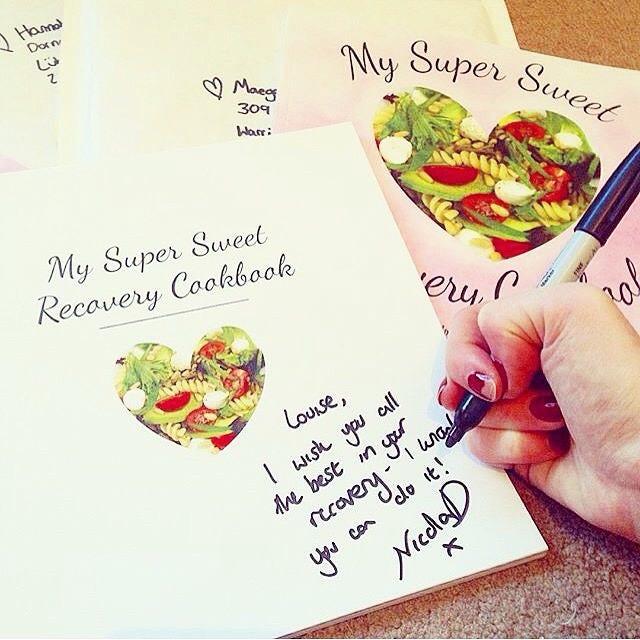 ♡ Maeg
309
Warri
My Super Sweet
ery C
My Super Sweet
Recovery Cookbook
Louise,
I wish you all
the best in your
recovery- I know
you can do it!
NicolaD
x